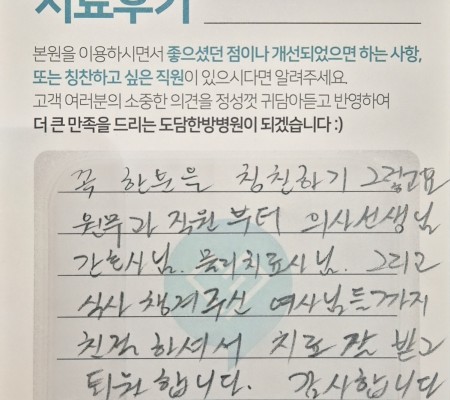 치료후기
본원을 이용하시면서 좋으셨던 점이나 개선되었으면 하는 사항,
또는 칭찬하고 싶은 직원이 있으시다면 알려주세요.
고객 여러분의 소중한 의견을 정성껏 귀담아듣고 반영하여
더 큰 만족을 드리는 도담한방병원이 되겠습니다 :)
꼭 한분을 칭친하기 그렇고요
원무과 직원부터 의사선생님
간호사님. 물리치료사님. 그리고
식사 챙겨주신 여사님들까지
친절하셔서 치료 잘 받고
퇴원합니다. 감사합니다